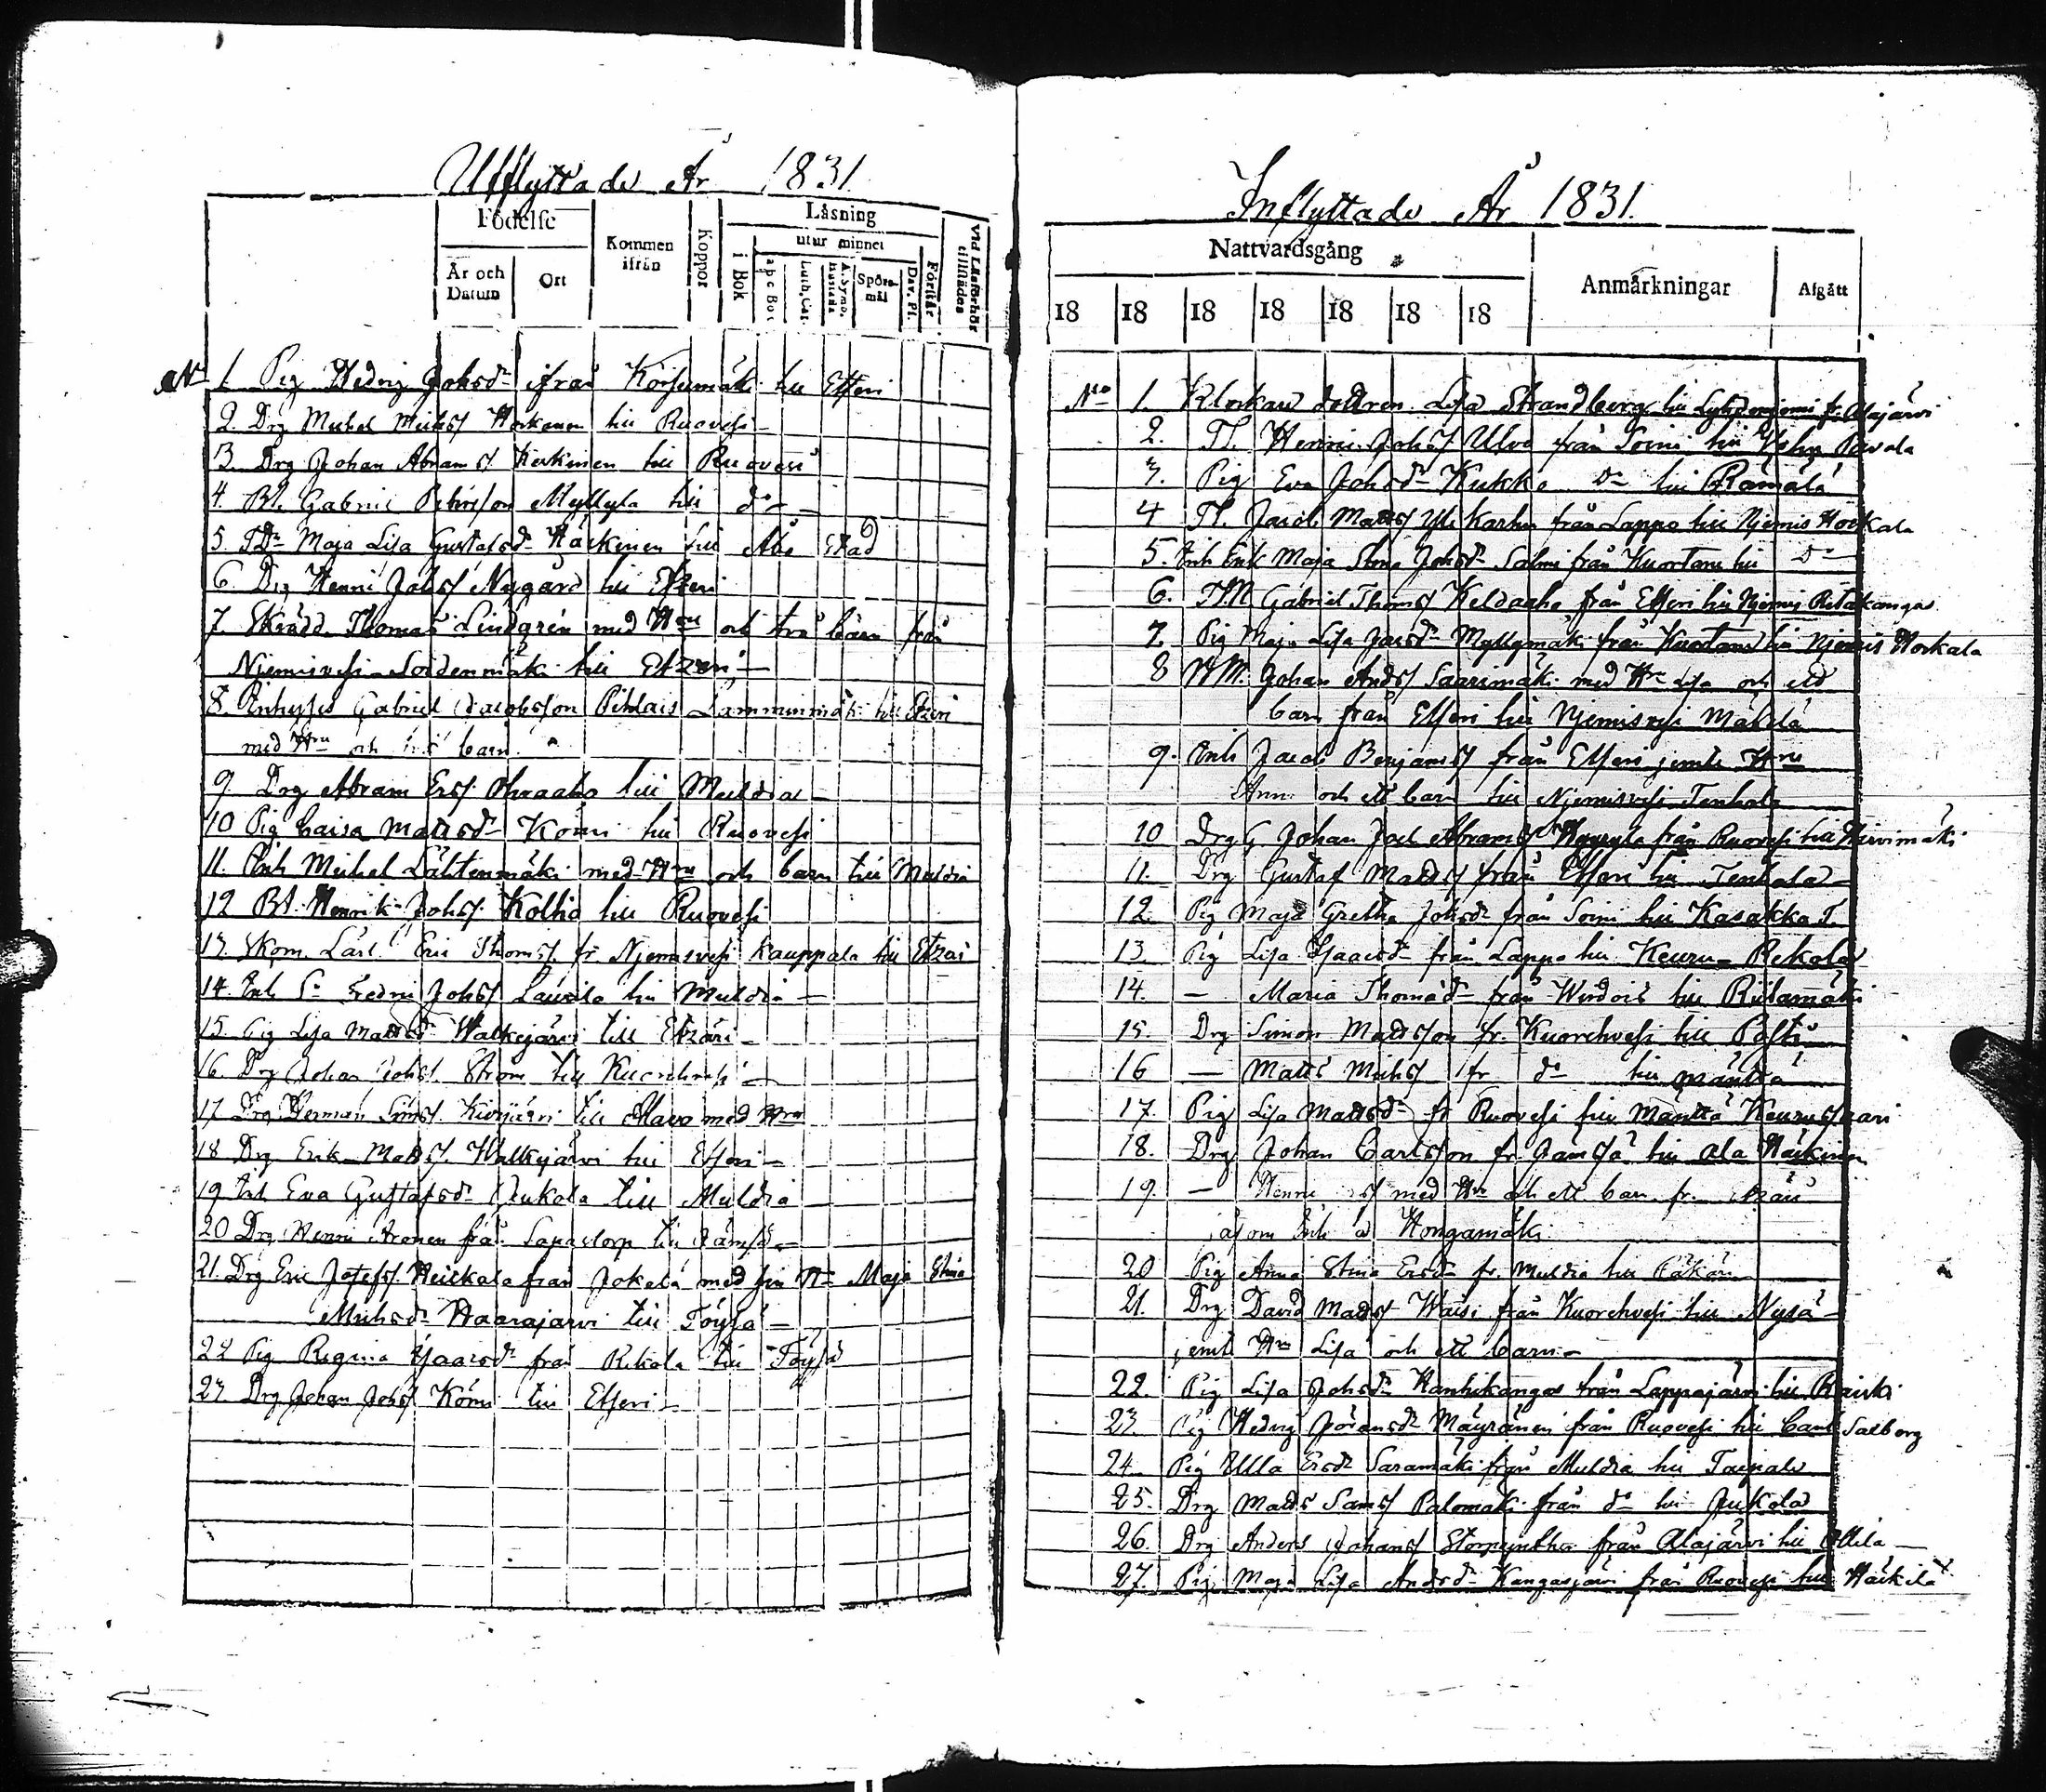 Utflyttade År 1831
Födelse
Kommen ifrån
Koppor
Läsning
Vid Läsförhör tillstädes
År och Datum
Ort
i Bok
utur minnet
a b c Bok
Luth. Cat.
Spörsmål
Dav. Ps.
Förstår
No 1. Pig Hedvig Johsdr ifrån till Etseri
2. Drg Michel Michss till Ruovesi
3. Drg Johan Abramss Kerkinen till Ruovesi
4. Bd. Gabriel Myllylä till do
5. Maja Lisa Gustafsdr Häckinen till Åbo Stad
6. Drg Henric Johss Nygård till Etzeri
7. Skrädd. Thomas Lindgrén med Hru och två barn från
Njemisvesi till Etzeri
8. Inhyses Gabriel Jacobsson Pihlais Lamminmäki till Etzeri
med Hru och två barn
9. Drg Abram Erss till Muldia
10 Pig Caisa Mattsdr Kömi till Ruovesi
11. Inh Michel Lähtenmäki med Hru och barn till Muldia
12 Bd. Henrik Johss Kolhio till Ruovesi
13. Skom. Lärl. Eric Thomss fr Njemisvesi Kauppala till Etzäri
14. Inh Sn Fredric Johss Laurila till Muldia
15. Pig Lisa Mattsdr Walkejärvi till Etzäri
16. Drg Johan Johss Ström till Kuorehvesi
17 Drg Herman Simss Kivijärvi till Alavo med Hru
18 Drg Erik Matss Walkejärvi till Etseri
19 Inh Eva Gustafsdr Jukola till Muldia
20 Drg Henric Aronen från till Jämsä
21. Drg Eric Josefss Heickala från Jokela med sin Hu Maja Stina
Michsdr Haarajärvi till Töysä
22 Pig Regina Isaacsdr från Rekola till Töysä
23. Drg Johan Johss Kömi till Etseri
Inflyttade År 1831.
Nattvardsgång
Anmärkningar
Afgått
18 18 18 18 18 18 18
No 1. Klockare dottren Lisa Strandberg till fr. Alajärvi
2. Tl. Henric Johss Ulvo från Soini till Pávola
3. Pig Eva Johsdr Kukko do till Rämälä
4 Tl. Jacob Mattss Yli Karhu från Lappo till Njemis Hockala
5. Inh Enk Maja Stina Johsdr Salmi från Kuortane till do
6. Gabriel Thomss Keldaaho från Etseri till Njemis Ritakangas
7. Pig Maja Lisa Jacsdr Myllymäki från Kuortane till Njemis Hockala
8 Johan Andss Saarimäki med Hru Lisa och ett
barn från Etseri till Njemisvesi Mäkelä
9. Inh Jacob Benjamss från Etseri jemte Hru
Anna och ett barn till Njemisvesi Tenhola
10 Drg G. Johan Joel Abramss från Ruovesi till Hirvimäki
11. Drg Gustaf Mattss från Etseri till Tenhola
12. Pig Maja Gretha Johsdr från Soini till Kasakka T.
13. Pig Lisa Isaacsdr från Lappo till Keuru Rekola
14. — Maria Thomädr från Wirdois till Riihimäki
15. Drg Simon Mattsson fr. Kuorehvesi till Påsti
16 — Matts Michss fr do till Mänttä
17. Pig Lisa Mattsdr fr Ruovesi till Mänttä
18. Drg Johan Carlsson fr. Jämsä till Ala Häckinen
19. — Henric med Hru och ett barn fr. Etzäri
såsom Inh å Hongamäki
20 Pig Anna Stina Ersdr fr. Muldia till
21. Drg David Mattss Waisi från Kuorehvesi till Nyssä
jemte Hru Lisa och ett barn
22. Pig Lisa Johsdr Hanhikangas från Lappajärvi till
23. Pig Hedvig Göransdr Mäyränen från Ruovesi till Salborg
24. Pig Ulla Ersdr Saramäki från Muldia till Taipale
25. Drg Matts Samss Palomäki från do till Jukola
26. Drg Anders Johanss från Alajärvi till Ollila
27. Pig Maja Lisa Andsdr Kangasjärvi från Ruovesi till Häckilä